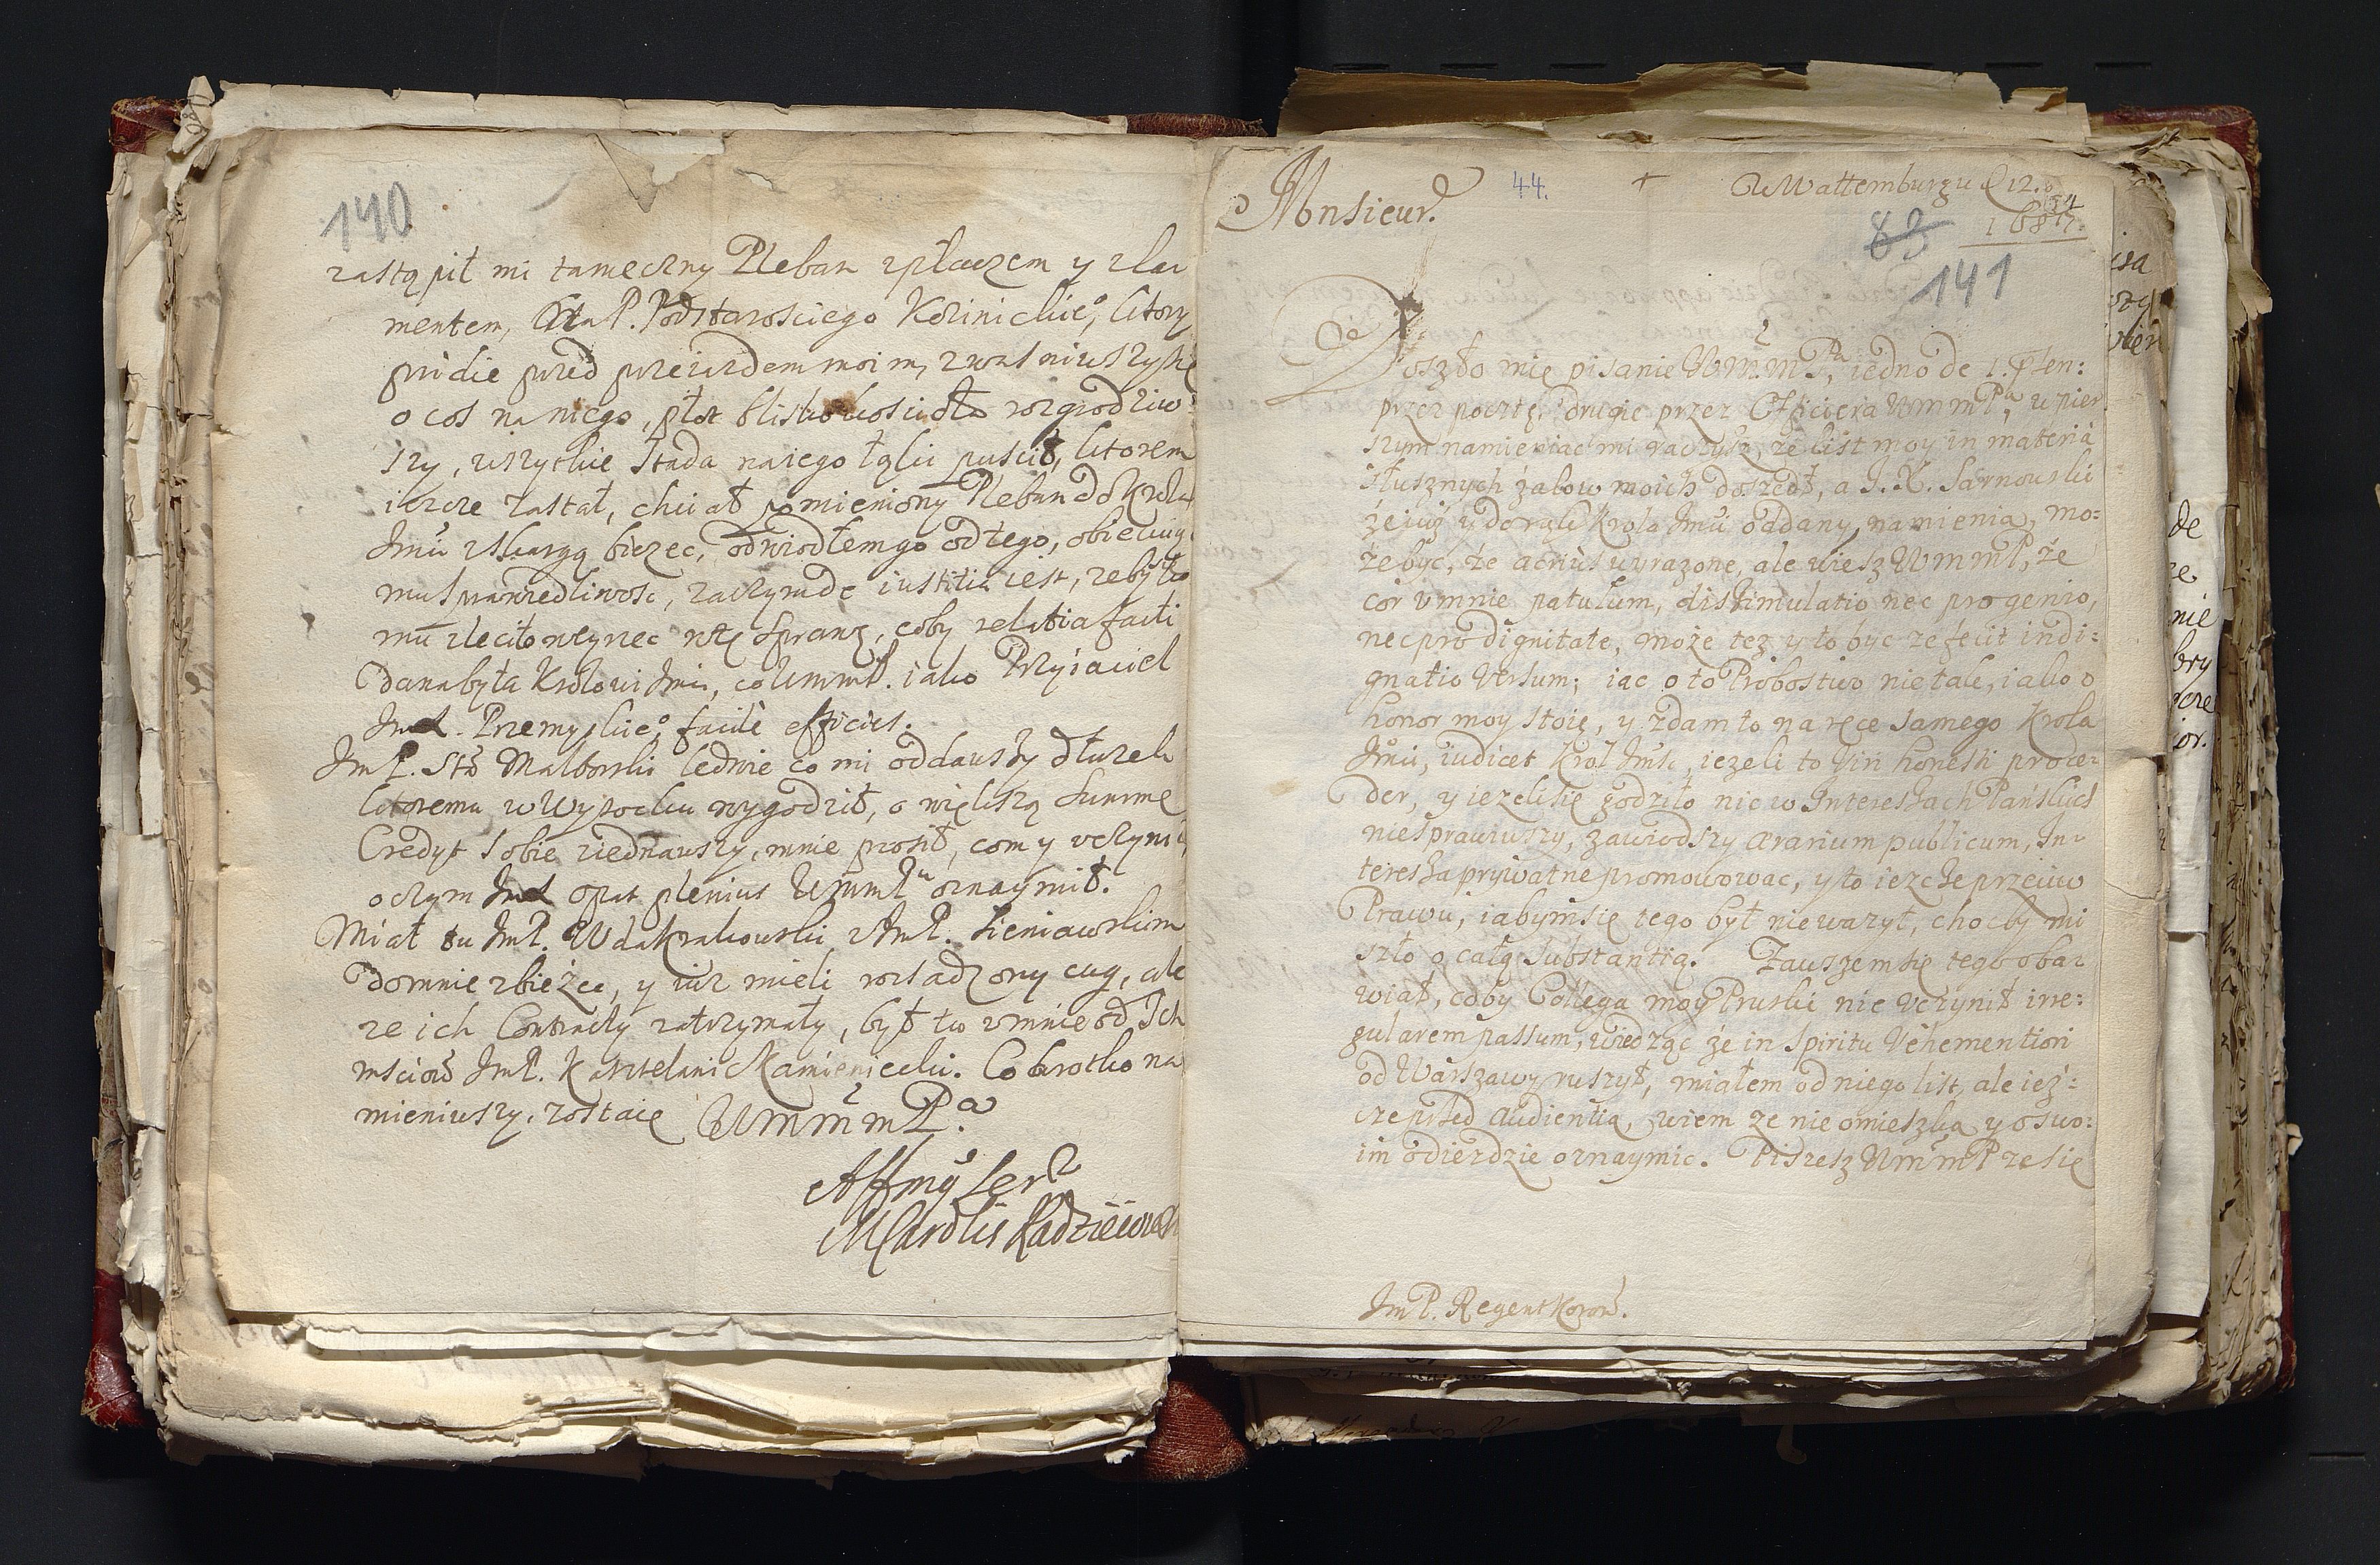 140
zastąpił mi tameczny Pleban z płaczem y zla
mentem, P. Podstarosciego Kozinickie͞o, ktory
pridie pred przeiazdem moim, zwasniwszy się
o cos na niego, płot blisko koscioła rozgrodziw
szy, wszytkie stada na iego Łąki puscił, ktorem
iescze zastał, chciał pomieniony Pleban do Krola
Jmći z skargą biezec, odwiodłem go od tego, obiecuiąc
mu sprawiedliwosc, zaczym de iustitia iest, zeby
mu zleciło weyrzec w tę sprawę, coby relatia facti
dana była Krolowi Jmći, co WmmP. iako Przyiaciel
Przemyskie͞o, facile efficies.
JmP. Sta Malborski ledwie co mi oddawszy dłuzek
ktoremu w Wysocku wygodził, o większą summę
Credyt sobie ziednawszy, mnie prosił, com y uczynił
o czym opat plenius WmmPu oznaymił.
Miał tu JmP. Wda Krakowski z JmP. Sieniawskim
do mnie zbieżec, y iuz mieli rozsadzony cug, ale
ze ich Contracty zatrzymały, był tu u mnie od Ich
msciow JmP. Kasztelanic Kamieniecki. Co krotko na
mieniwszy, zostaię WmmmPa
Affmus ser
MCardlis Radzieiows
Monsieur.
44.
+
w Wattemburgu d 12.
1687.
89
141
Doszło mię pisanie WmmmPa, iedno de 1. pten:
przez pocztę, drugie przez Officiera WmmmPa, w pier
szym namieniac mi raczysz, ze list moy in materia
słusznych żalow moich doszedł, a J.X. Sarnowski
że iuż y do rąk Krola Jmći oddany namienia, mo:
że byc, że acrius wyrazone, ale wiesz WmmmP, że
cor u mnie patulum, dissimulatio nec pro genio,
nec pro dignitate, może tez y to byc ze fecit indi:
gnatio versum; iac o to Probostwo nie tak, iako o
honor moy stoię, y zdam to na ręce samego Krola
Jmći, iudicet Krol Jmśc, iezeli to Viri honesti proce:
der, y iezeli się godziło nic w Interessach Pańskich
nie sprawiwszy, zawiodszy ærarium publicum, In
teressa prywatne promowowac, y to iezcze przeciw
Prawu, iabym się tego był nie wazył, chocby mi
szło o całą substantią. Zawszem się tego oba
wiał, coby Collega moy Pruski nie uczynił irre:
gularem passum, wiedząc że in spiritu vehementiori
od Warszawy ruszył, miałem od niego list, ale iez:
cze przed audientią, wiem ze nie omieszka y o swo:
im odiezdzie oznaymic. Piszesz WmmmP ze się
JmP. Regent Koron.